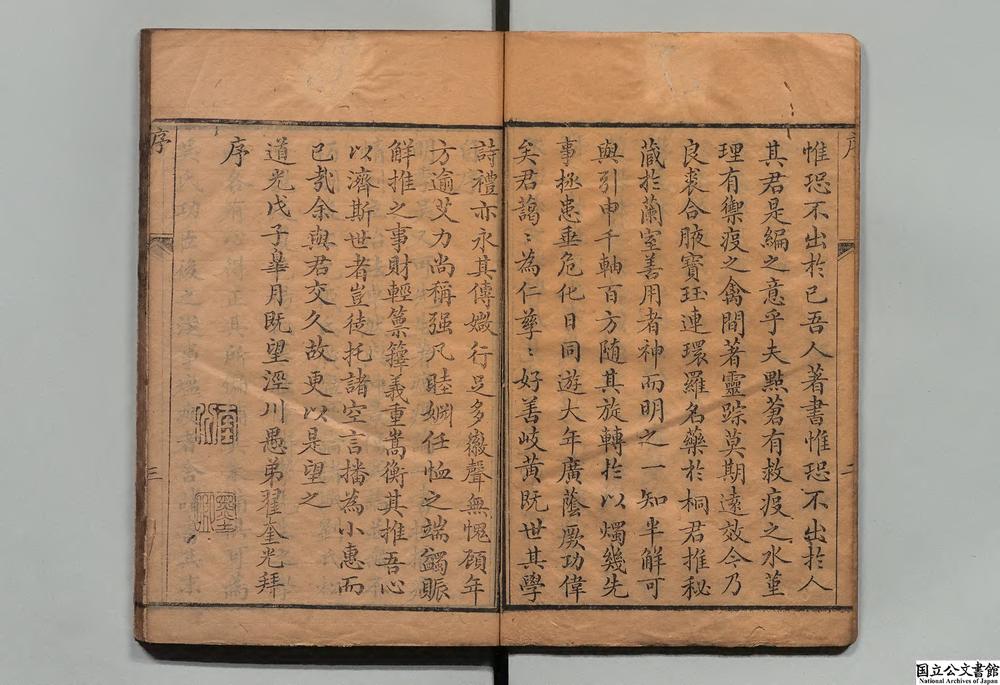 序
二
惟恐不出於已吾人著書惟恐不出於人
其君是編之意乎夫點蒼有救疫之水堇
理有禦疫之禽間著靈踪莫期遠效今乃
良裘合腋寶珏連環羅名藥於桐君推秘
藏於蘭室善用者神而明之一知半解可
與引申千軸百方隨其旋轉於以燭幾先
事拯患垂危化日同遊大年廣蔭厥功偉
矣君藹〻為仁孳〻好善岐黃既世其學
詩禮亦永其傳媺行足多徽聲無愧顧年
方逾艾力尚稱强凡睦婣任恤之端蠲賑
解推之事財輕籯籝義重嵩衡其推吾心
以濟斯世者豈徒托諸空言播為小惠而
已哉余與君交久故更以是望之
道光戊子皐月既望涇川愚弟翟奎光拜
序
序
三
國立公文書館
National Archives of Japan